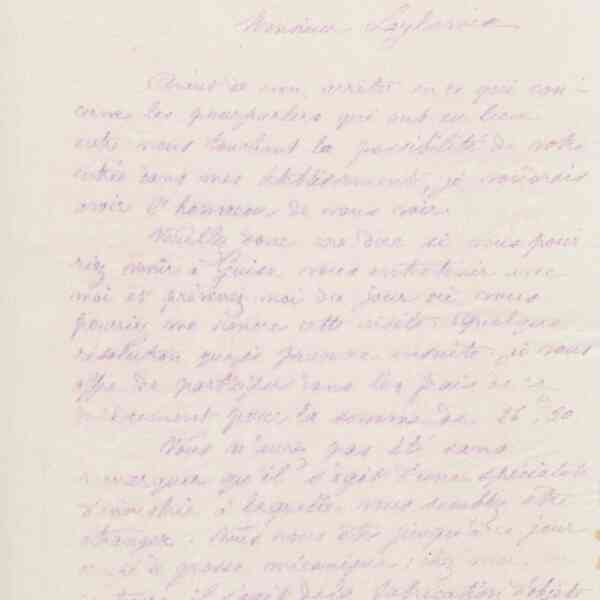 Monsieur
Avant de rien arrêter en ce qui con-
cerne les pourparlers qui ont eu lieu
entre nous touchant la possibilité de votre
entrée dans mes établissements, je voudrais
avoir l'honneur de vous voir.
Veuillez donc me dire si vous pour
riez venir à Guise vous entretenir avec
moi et prévenez-moi du jour où vous
pourriez me rendre cette visite. Quelque
résolution que je prenne ensuite, je vous
offre de participer dans les frais de ce
pour la somme de 25 20
Vous n'avez pas été sans
remarquer qu'il s'agit d'une spécialité
d'industrie à laquelle vous semblez être
étranger. Vous vous êtes jusqu'à ce jour
à grosse mécanique; chez moi,
il s'agit de la fabrication d'objets